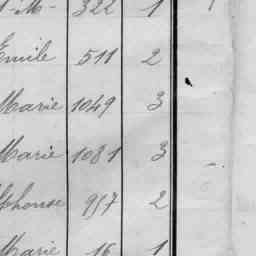 -M- 322 1
Emile 511 2
Marie 1049 3
Marie 1081 3
lphonse 957 2
Marie 16 1